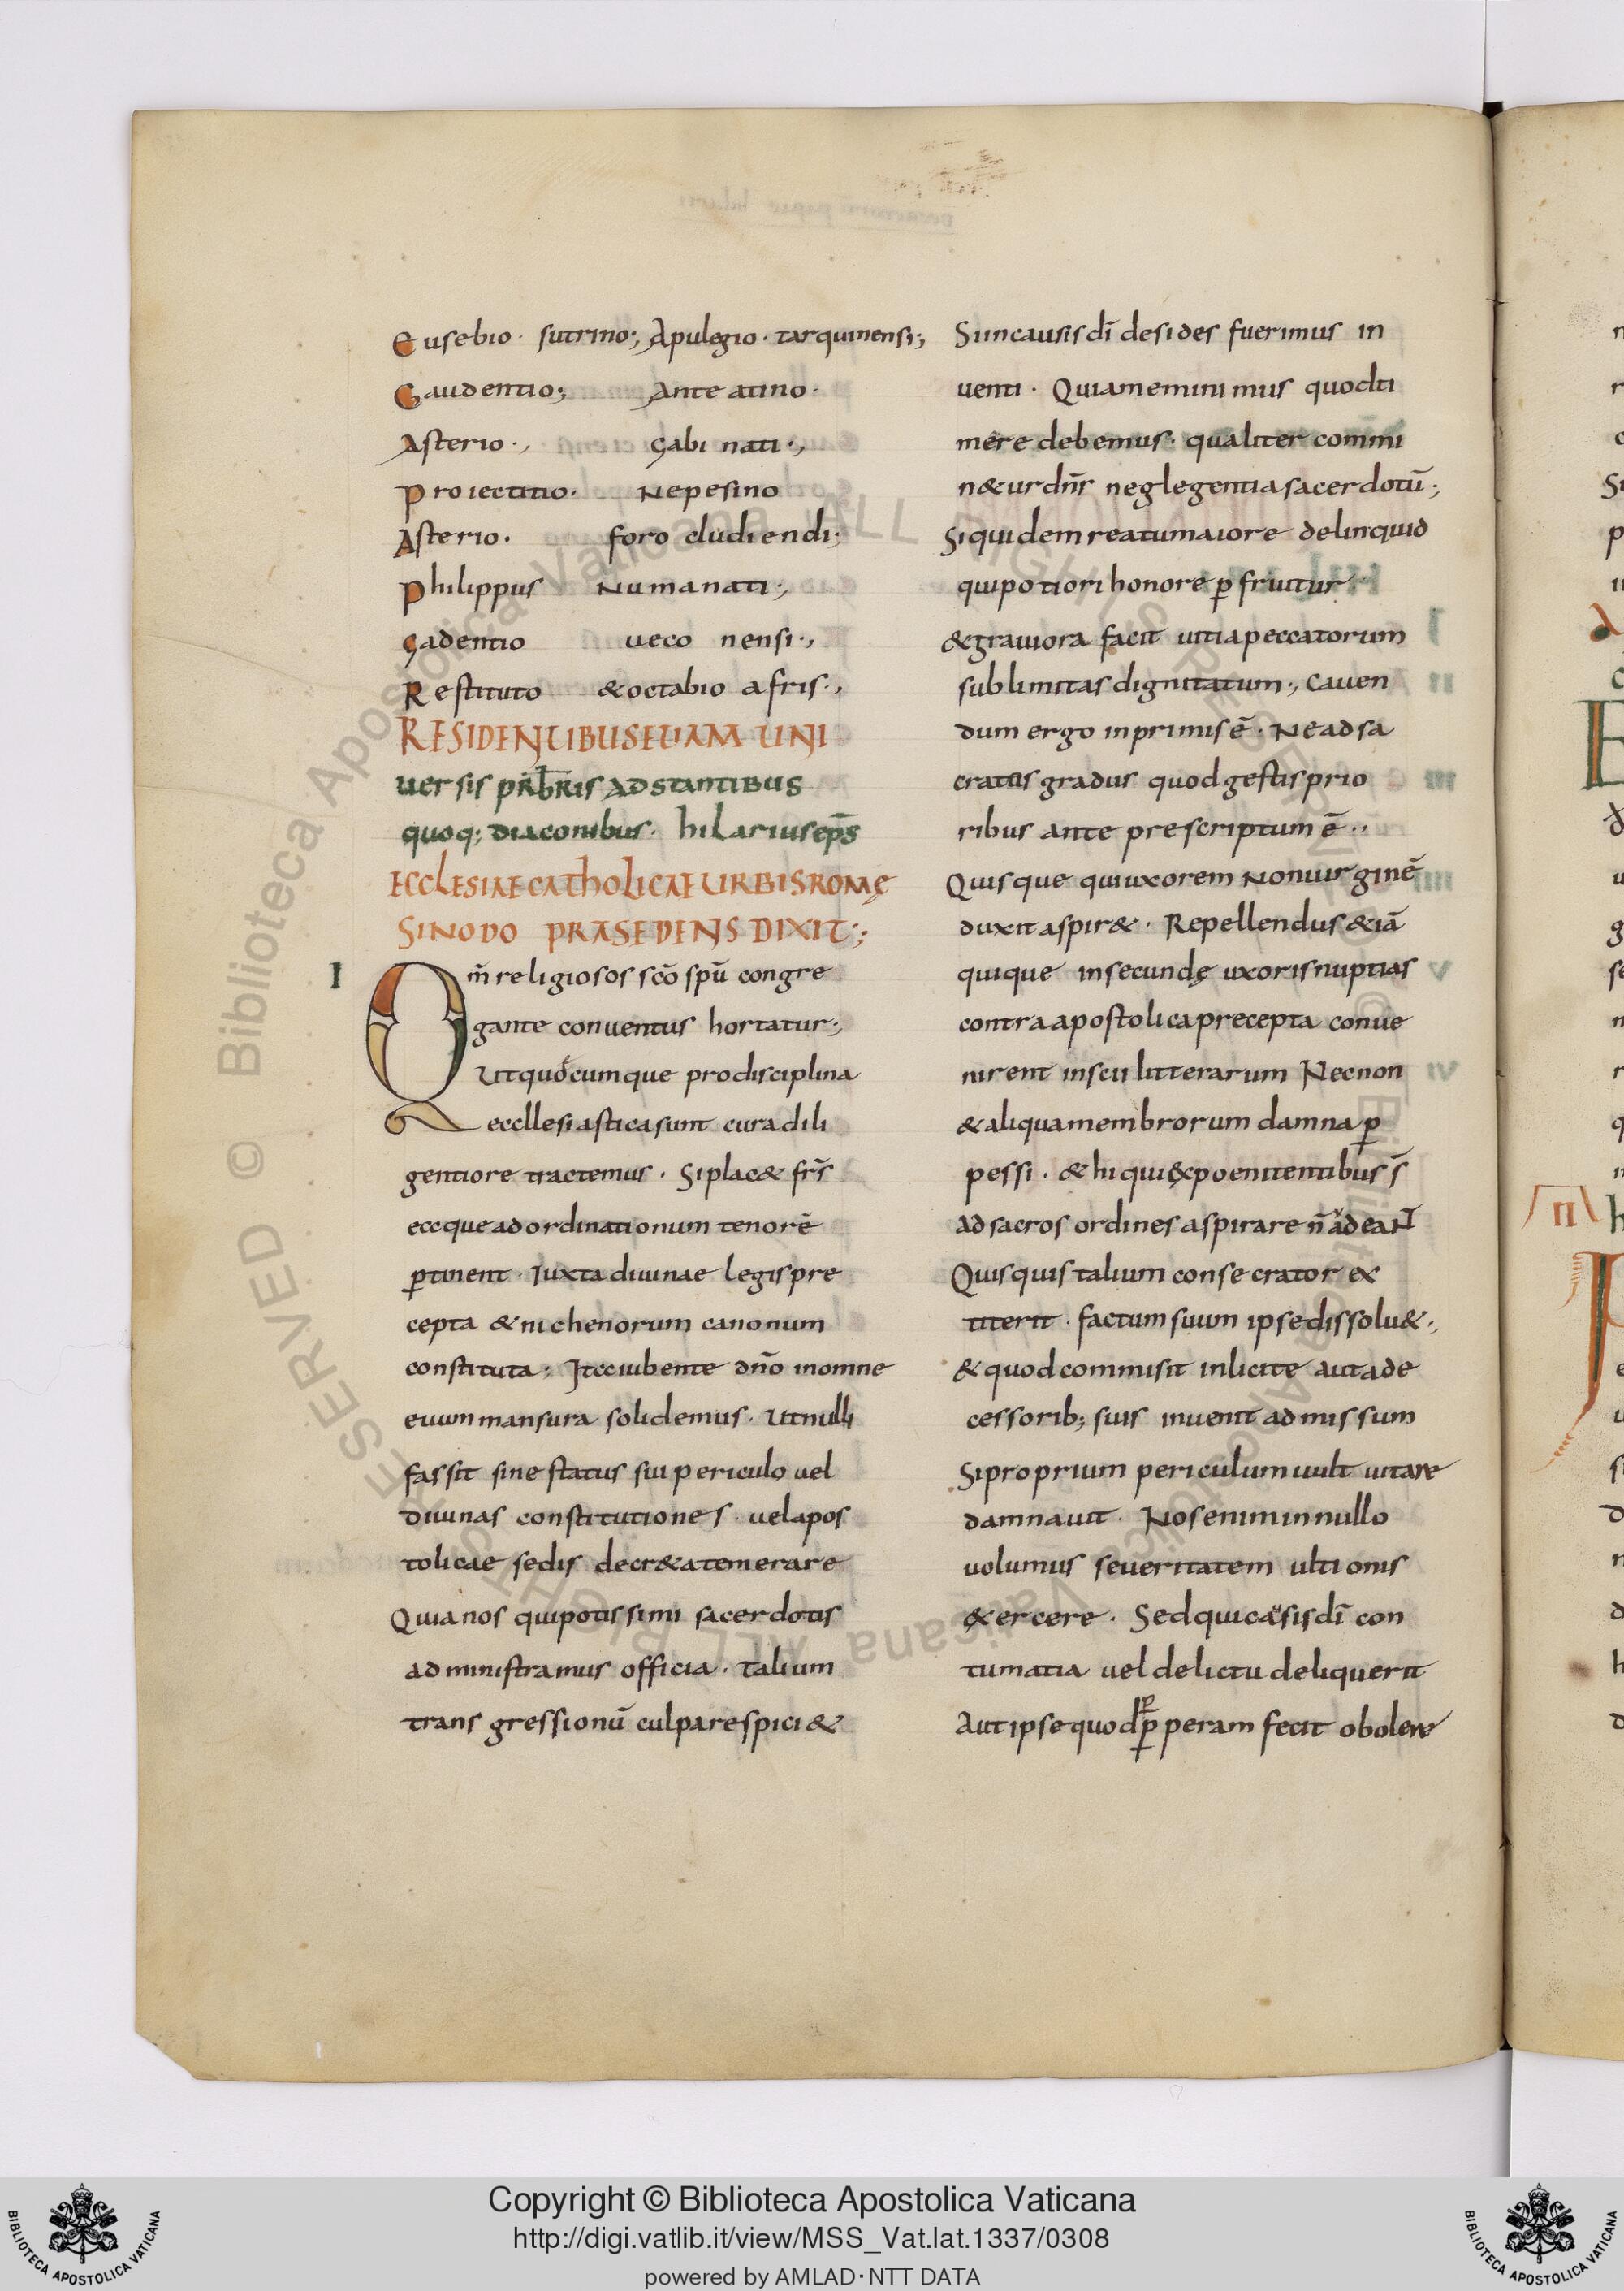 Eusebio · sutrino; Apulegio · tarquinensi;
Gaudentio; Ante atino ·
Asterio ·, Gabi nati ·,
Proiectitio · Nepesino
Asterio · foro cludiendi;
Philippus Numanati ·,
Gadentio ueco nensi ·,
Restituto &octabio afris ·,
RESIDENTIBUS ETIAM UNI
uersis prb̄ris adstantibus
quoq; diaconibus · hilarius ep̄s
ECCLESIAE CATHOLICAE URBIS ROMĘ
SINODO PRASEDENS DIXIT;
I
Qm̄ religiosos sc̄o sp̄u congre
gante conuentus hortatur;
Utquocumque pro disciplina
eccllesiastica sunt cura dili
gentiore tractemus · Si plac& fr̄s
eccque ad ordinationum tenorē
ꝑtinent · Juxta diuinae legis pre
cepta & nichenorum canonum
constituta; Itcciubente dn̄o inomne
euum mansura solidemus · Ut nulli
fas sit sine status sui periculo uel
diuinas constitutiones · uel apos
tolicae sedis decr&a temerare
Quia nos qui potissimi sacerdotis
administramus officia · Talium
transgressionū culpa respici&
Si in causis dī desides fuerimus in
uenti · Quia meminimus quod ti
mere debemus · qualiter commi
n&ur dn̄r neglegentia sacerdotū;
Siquidem reatu maiore delinquid
qui potiori honore ꝑfruitur
&grauiora facit uitia peccatorum
sublimitas dignitatum ·, Cauen
dum ergo inprimis ē · Ne ad sa
cratus gradus quod gestis prio
ribus ante prescriptum ē ·,
Quisque qui uxorem non uirginē
duxit aspir& · Repellendus &iā
quique in secundę uxoris nuptias
contra apostolica precepta conue
nirent inscii litterarum Necnon
& aliqua membrorum damna ꝑ
pessi · & hi qui ex poenitentibus s̄
ad sacros ordines aspirare n̄ adeant
Quisquis talium consecrator ex
titerit · factum suum ipse dissolu& ·,
& quod commisit inlicite aut ade
cessorib; suis inuenit admissum
Si proprium periculum uult uitare
damnauit · Nos enim in nullo
uolumus seueritatem ultionis
&ercere · Sed qui causis dī con
tumatia uel delictu deliquerit
Aut ipse quod ꝑperam fecit obolere
Copyright © Biblioteca Apostolica Vaticana
http://digi.vatlib.it/view/MSS_Vat.lat.1337/0308
powered by AMLAD·NTT DATA
BIBLIOTECA APOSTOLICA VATICANA
BIBLIOTECA APOSTOLICA VATICANA